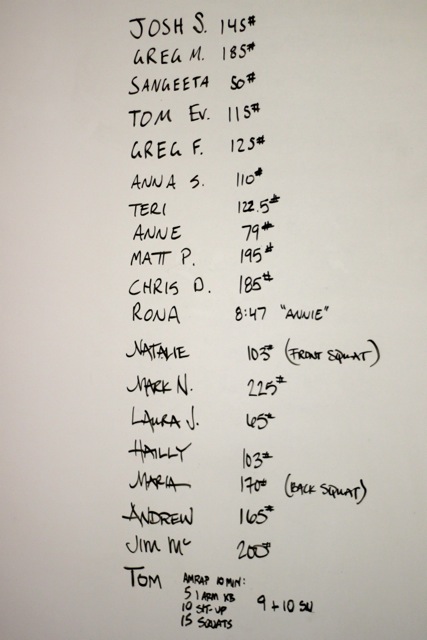 JOSH S. 145#
GREG M. 185#
SANGEETA 50#
TOM EV. 115#
GREG F. 125#
ANNA S. 110#
TERI 122.5#
ANNE 79#
MATT P. 195#
CHRIS D. 185#
RONA 8:47 "ANNIE"
NATALIE 103# (FRONT SQUAT)
MARK N. 225#
LAURA J. 65#
HAILLY 103#
MARIA 170# (BACK SQUAT)
ANDREW 165#
JIM Mc 200#
TOM AMRAP 10 MIN:
5 1 ARM KB
10 SIT-UP 9 + 10 SU
15 SQUATS